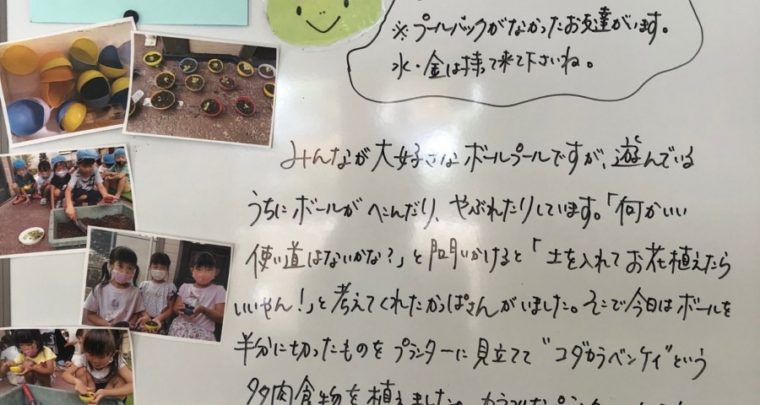 ※プールバックがなかったお友達がいます。
水・金は持って来て下さいね。
みんなが大好きなボールプールですが、遊んでいる
うちにボールがへこんだり、やぶれたりしています。「何かいい
使い道はないかな？」と問いかけると「土を入れてお花植えたら
いいやん！」と考えてくれたかっぱさんがいました。そこで今日はボールを
半分に切ったものをプランターに見立てて“コダカラベンケイ”という
多肉食物を植えました。